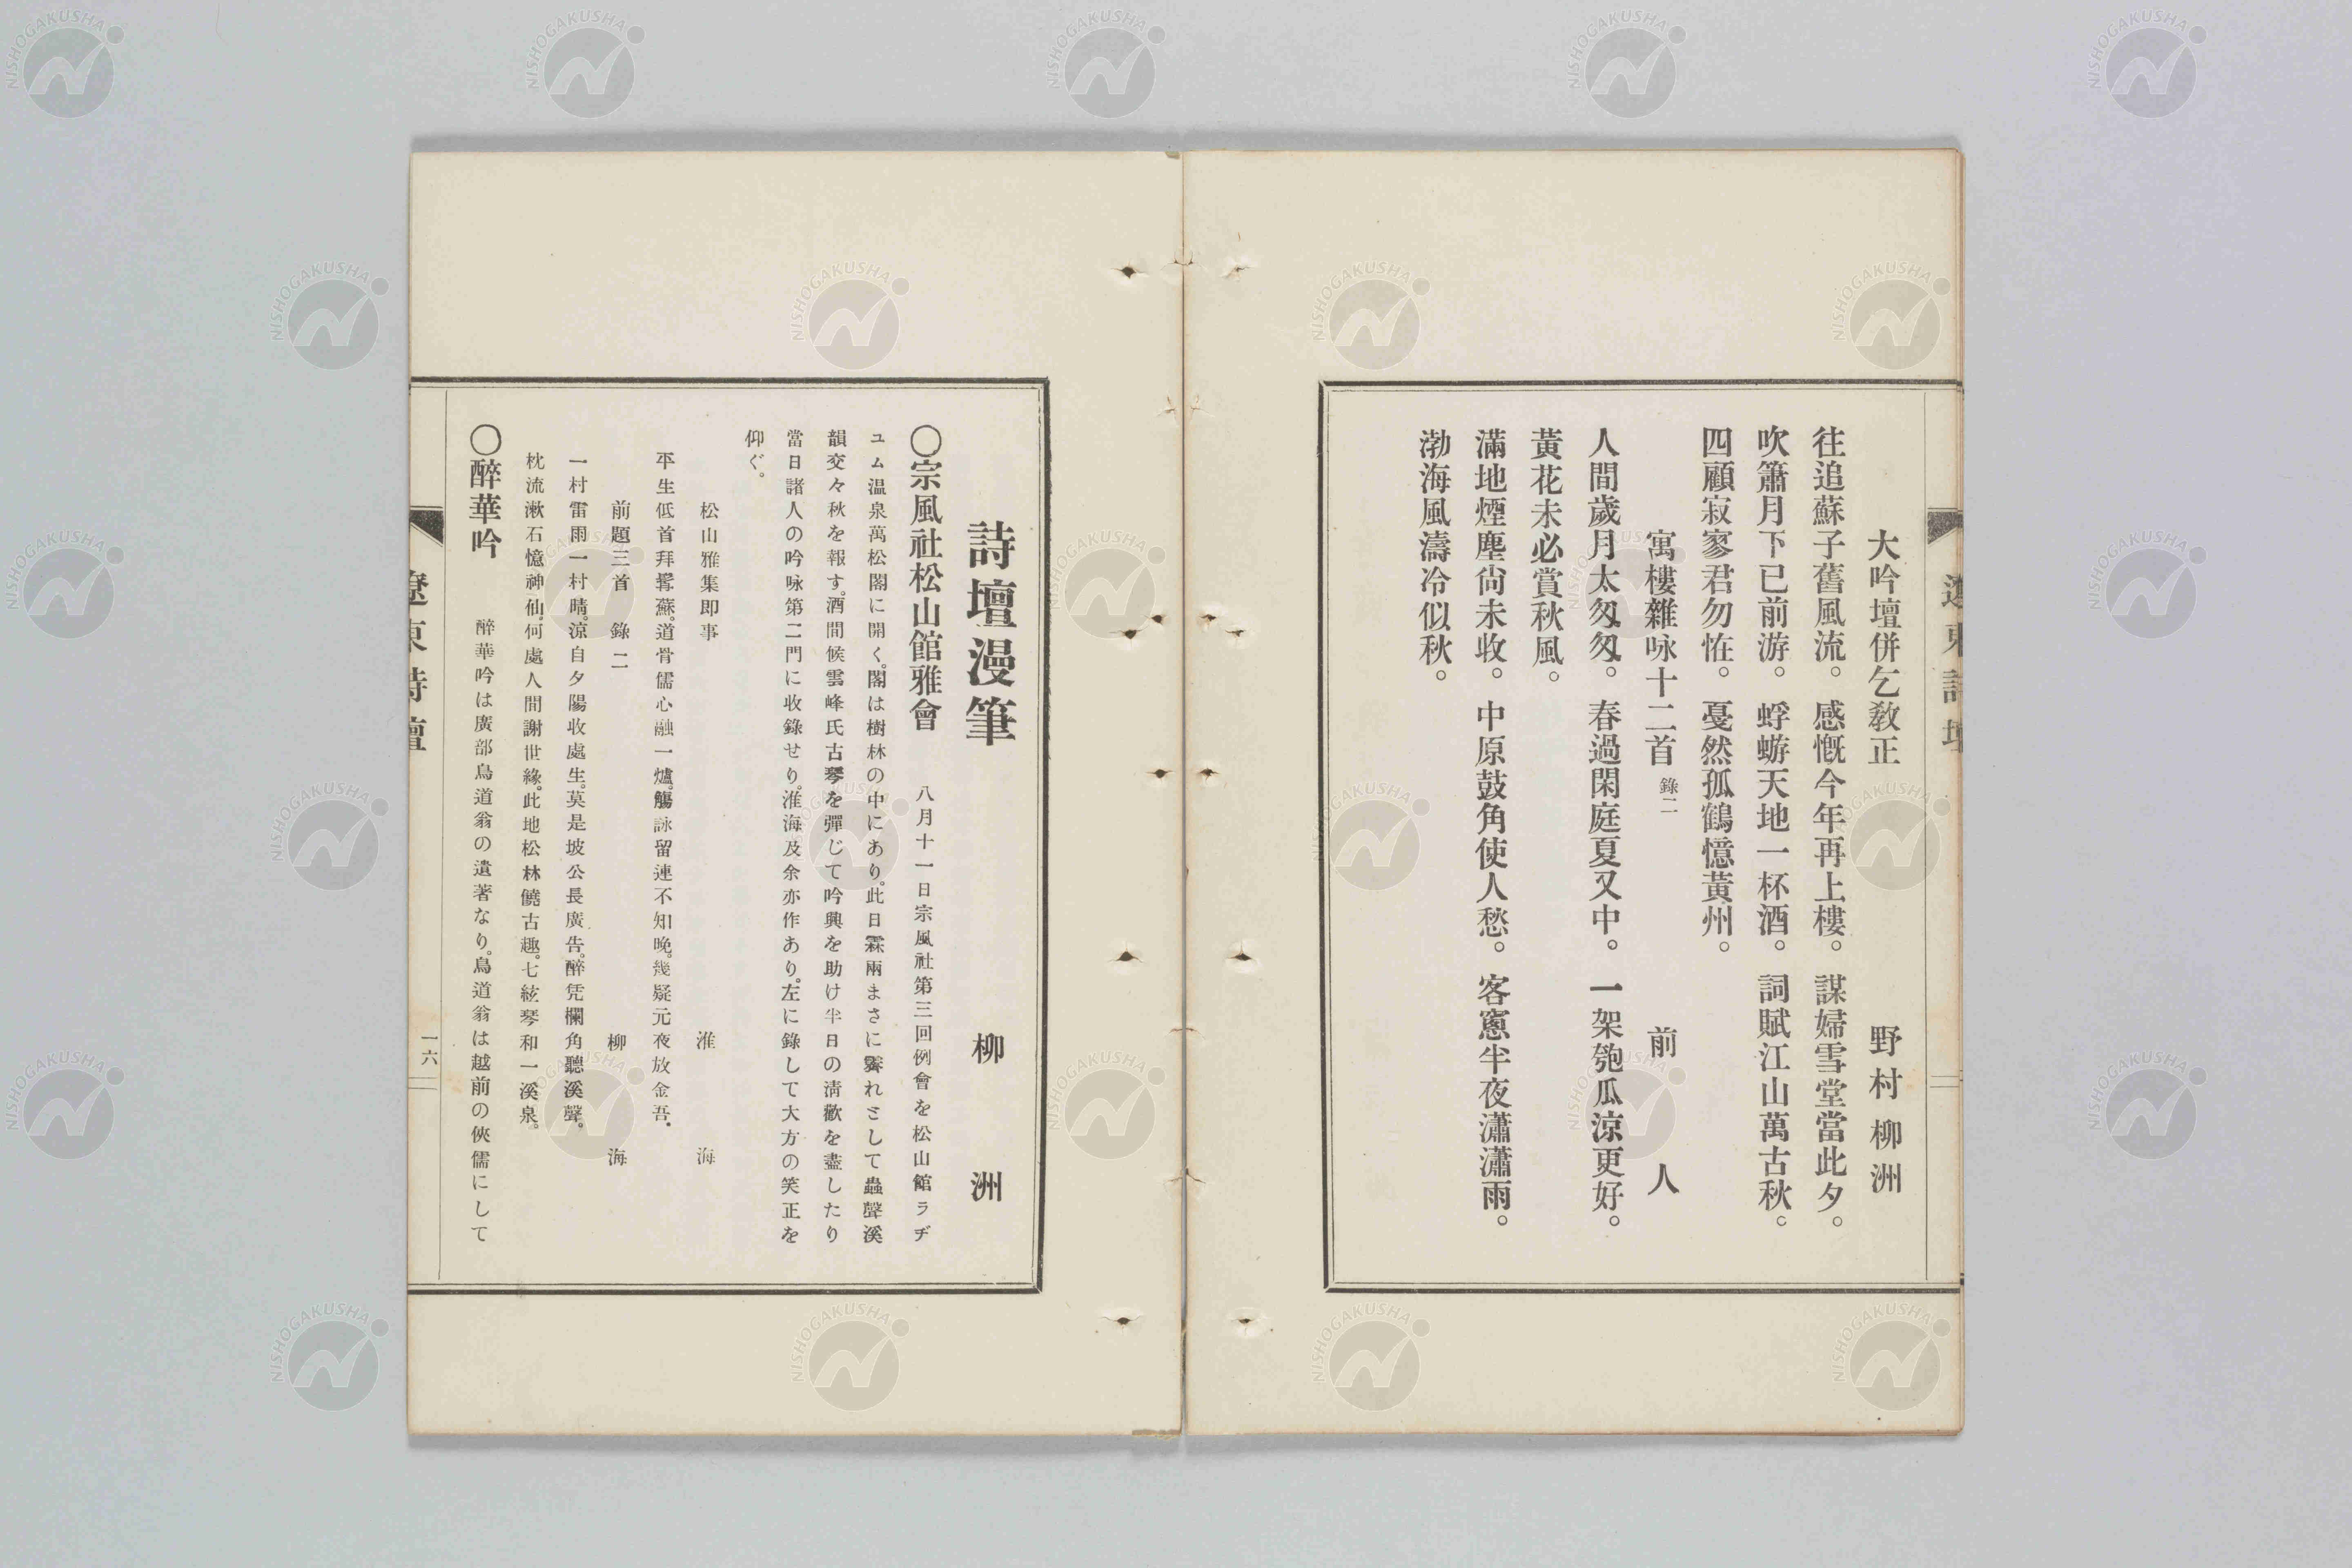 大吟壇併乞教正　野村柳洲
往追蘇子舊風流。感慨今年再上樓。謀婦雪堂當此夕。
吹簫月下已前游。蜉蝣天地一杯酒。詞賦江山萬古秋。
四顧寂寥君勿恠。戞然孤鶴憶黃州。
寓樓雜咏十二首 錄二　前人
人間歲月太匆匆。春過閑庭夏又中。一架匏瓜涼更好。
黃花未必賞秋風。
滿地煙塵尙未收。中原鼓角使人愁。客窻半夜瀟瀟雨。
渤海風濤冷似秋。
詩壇漫筆　柳洲
〇宗風社松山館雅會　八月十一日宗風社第三回例會を松山館ラヂ
ユム温泉萬松閣に開く。閣は樹林の中にあり。此日霖雨まさに霽れとして蟲聲溪
韻交々秋を報す。酒間候雲峰氏古琴を彈じて吟興を助け半日の淸歡を盡したり
當日諸人の吟咏第二門に收錄せり。淮海及余亦作あり。左に錄して大方の笑正を
仰ぐ。
松山雅集即事　淮海
平生低首拜髯蘇。道骨儒心融一爐。觴詠留連不知晚。幾疑元夜放金吾。
前題三首　錄二　柳海
一村雷雨一村晴。涼自夕陽收處生。莫是坡公長廣告。醉凭欄角聽溪聲。
枕流漱石憶神仙。何處人間謝世緣。此地松林饒古趣。七絃琴和一溪泉。
〇醉華吟　醉華吟は廣部鳥道翁の遺著なり。鳥道翁は越前の俠儒にして
遼東詩壇
一六
NISHOGAKUSHA